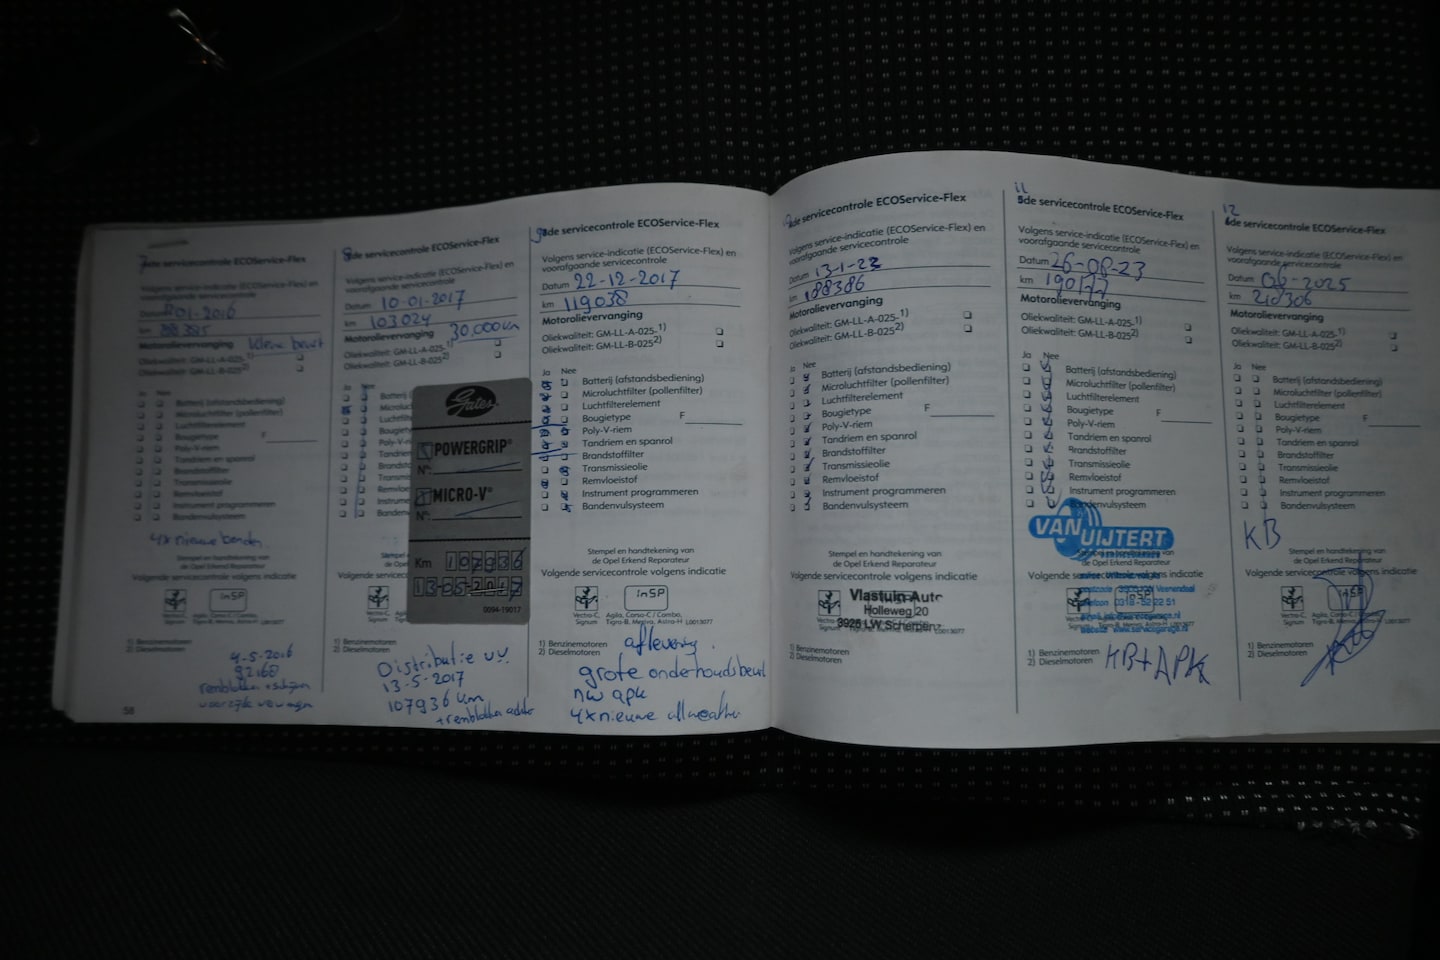 7de servicecontrole ECOService-Flex
Volgens service-indicatie (ECOService-Flex) en
voorafgaande servicecontrole
Datum 01-2016
km 88385
Motorolievervanging kleine beurt
Oliekwaliteit: GM-LL-A-025 1)
Oliekwaliteit: GM-LL-B-025 2)
Ja Nee
Batterij (afstandsbediening)
Microluchtfilter (pollenfilter)
Luchtfilterelement
Bougietype F
Poly-V-riem
Tandriem en spanrol
Brandstoffilter
Transmissieolie
Remvloeistof
Instrument programmeren
Bandenvulsysteem
4x nieuwe banden
Stempel en handtekening van
de Opel Erkend Reparateur
Volgende servicecontrole volgens indicatie
InSP
1) Benzinemotoren
2) Dieselmotoren
4-5-2016
92168
remblokken + schijven
voorzijde vervangen
58
8de servicecontrole ECOService-Flex
Volgens service-indicatie (ECOService-Flex) en
voorafgaande servicecontrole
Datum 10-01-2017
km 103024
Motorolievervanging 30.000km
Oliekwaliteit: GM-LL-A-025 1)
Oliekwaliteit: GM-LL-B-025 2)
Ja Nee
Gates
POWERGRIP®
N°:
MICRO-V®
N°:
Km 107936
13-05-2017
0094-19017
1) Benzinemotoren
2) Dieselmotoren
Distributie vv.
13-5-2017
107936 km
+ remblokken achter
9de servicecontrole ECOService-Flex
Volgens service-indicatie (ECOService-Flex) en
voorafgaande servicecontrole
Datum 22-12-2017
km 119038
Motorolievervanging
Oliekwaliteit: GM-LL-A-025 1)
Oliekwaliteit: GM-LL-B-025 2)
Ja Nee
Batterij (afstandsbediening)
Microluchtfilter (pollenfilter)
Luchtfilterelement
Bougietype F
Poly-V-riem
Tandriem en spanrol
Brandstoffilter
Transmissieolie
Remvloeistof
Instrument programmeren
Bandenvulsysteem
Stempel en handtekening van
de Opel Erkend Reparateur
Volgende servicecontrole volgens indicatie
InSP
Vectra-C, Signum
Agila, Corsa-C / Combo,
Tigra-B, Meriva, Astra-H L0013077
1) Benzinemotoren
2) Dieselmotoren
aflevering.
grote onderhoudsbeurt
nw apk
4x nieuwe allweather
de servicecontrole ECOService-Flex
Volgens service-indicatie (ECOService-Flex) en
voorafgaande servicecontrole
Datum 13-1-23
km 188386
Motorolievervanging
Oliekwaliteit: GM-LL-A-025 1)
Oliekwaliteit: GM-LL-B-025 2)
Ja Nee
Batterij (afstandsbediening)
Microluchtfilter (pollenfilter)
Luchtfilterelement
Bougietype F
Poly-V-riem
Tandriem en spanrol
Brandstoffilter
Transmissieolie
Remvloeistof
Instrument programmeren
Bandenvulsysteem
Stempel en handtekening van
de Opel Erkend Reparateur
Volgende servicecontrole volgens indicatie
Vlastuin Auto
Holleweg 20
3925 LW Scherpenz
1) Benzinemotoren
2) Dieselmotoren
11
5de servicecontrole ECOService-Flex
Volgens service-indicatie (ECOService-Flex) en
voorafgaande servicecontrole
Datum 26-08-23
km 190177
Motorolievervanging
Oliekwaliteit: GM-LL-A-025 1)
Oliekwaliteit: GM-LL-B-025 2)
Ja Nee
Batterij (afstandsbediening)
Microluchtfilter (pollenfilter)
Luchtfilterelement
Bougietype F
Poly-V-riem
Tandriem en spanrol
Brandstoffilter
Transmissieolie
Remvloeistof
Instrument programmeren
Bandenvulsysteem
VAN UIJTERT
1) Benzinemotoren
2) Dieselmotoren
KB+APK
12
6de servicecontrole ECOService-Flex
Volgens service-indicatie (ECOService-Flex) en
voorafgaande servicecontrole
Datum 06-2025
km 210306
Motorolievervanging
Oliekwaliteit: GM-LL-A-025 1)
Oliekwaliteit: GM-LL-B-025 2)
Ja Nee
Batterij (afstandsbediening)
Microluchtfilter (pollenfilter)
Luchtfilterelement
Bougietype F
Poly-V-riem
Tandriem en spanrol
Brandstoffilter
Transmissieolie
Remvloeistof
Instrument programmeren
Bandenvulsysteem
KB
Stempel en handtekening van
de Opel Erkend Reparateur
Volgende servicecontrole volgens indicatie
InSP
1) Benzinemotoren
2) Dieselmotoren